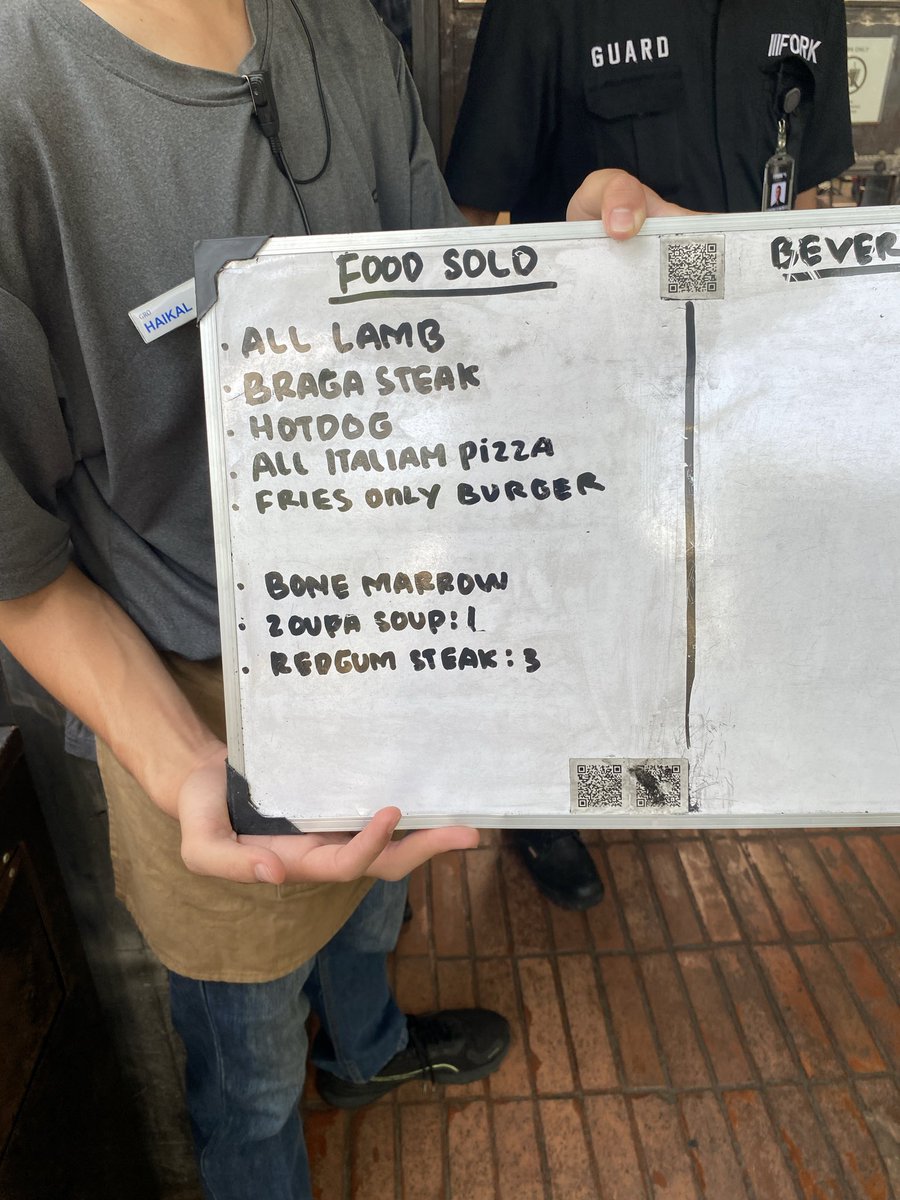 GUARD
FORK
GRO
HAIKAL
FOOD SOLD
BEVER
· ALL LAMB
· BRAGA STEAK
· HOTDOG
· ALL ITALIAM PIZZA
· FRIES ONLY BURGER
· BONE MARROW
· ZOUPA SOUP: 1
· REDGUM STEAK: 3